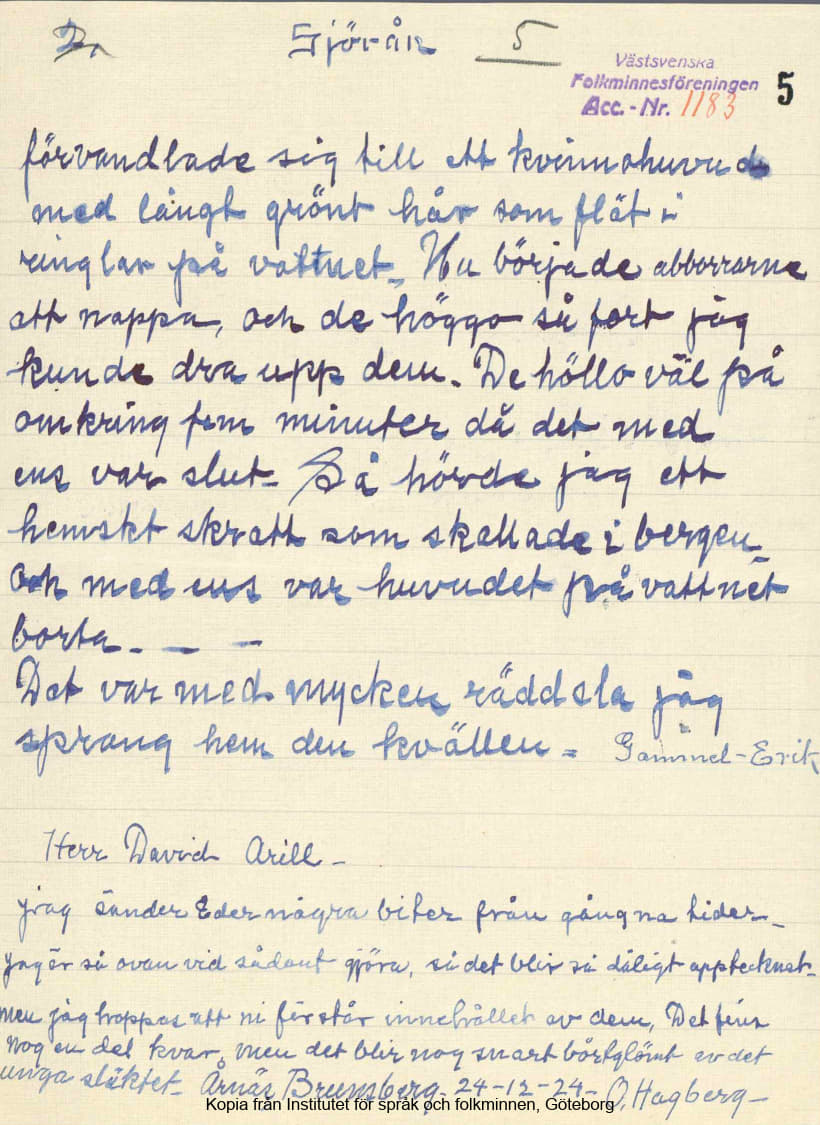 2.
Sjörån 5
Västsvenska
Folkminnesföreningen
Acc.-Nr. 1183
5
förvandlade sig till ett kvinnohuvud
med långt grönt hår som flöt i
ringlar på vattnet. Nu började abborrarna
att nappa, och de höggo så fort jag
kunde dra upp dem. De höllo väl på
omkring fem minuter då det med
ens var slut. Så hörde jag ett
hemskt skratt som skallade i bergen
och med ens var huvudet på vattnet
borta. – –
Det var med mycken räddsla jag
sprang hem den kvällen = Gammel-Erik
Herr David Arill –
jag sänder Eder några biter från gångna tider –
jag är så ovan vid sådant gjöra, så det blir så dåligt upptecknat –
men jag hoppas att ni förstår innehållet av dem, Det finns
nog en del kvar, men det blir nog snart bortglömt av det
unga släktet – Årnäs Brunsberg. 24-12-24 – O, Hagberg –
Kopia från Institutet för språk och folkminnen, Göteborg